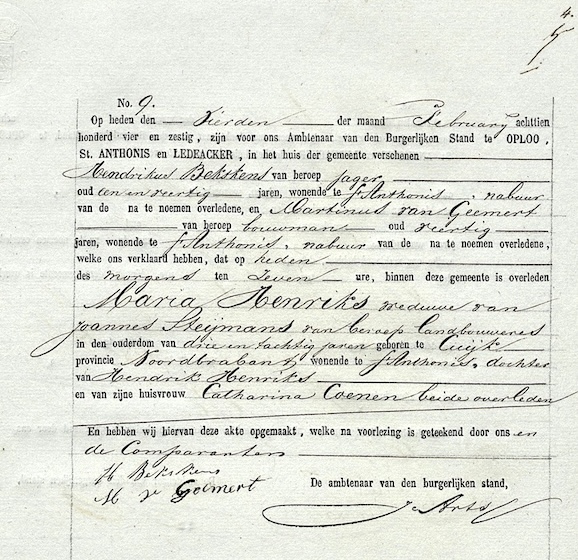 4.
No. 9.
Op heden den Vierden der maand February achttien
honderd vier en zestig, zijn voor ons Ambtenaar van den Burgerlijken Stand te OPLOO,
St. ANTHONIS en LEDEACKER, in het huis der gemeente verschenen
Hendrikus Bekskens van beroep jager
oud een en veertig jaren, wonende te St Anthonis, nabuur
van de na te noemen overledene, en Martinus van Geemert
van beroep bouwman oud veertig
jaren, wonende te St Anthonis, nabuur van de na te noemen overledene,
welke ons verklaard hebben, dat op heden
des morgens ten Zeven ure, binnen deze gemeente is overleden
Maria Henriks weduwe van
Joannes Steijmans van beroep landbouweres
in den ouderdom van drie en tachtig jaren geboren te Cuijk
provincie Noordbrabant, wonende te St Anthonis, dochter
van Hendrik Henriks
en van zijne huisvrouw Catharina Coenen beide overleden
En hebben wij hiervan deze akte opgemaakt, welke na voorlezing is geteekend door ons en
de Comparanten
H Bekskens
M v Geemert
De ambtenaar van den burgerlijken stand,
Arts